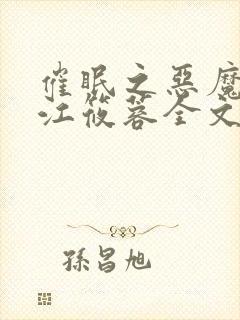 催眠之惡魔
江筱蓉全文
孫昌旭